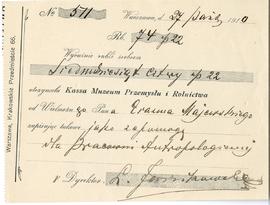 № 511 Warszawa, d. 27 paźdz 1910
Rb. 74 kp 22
Wyraźnie rubli srebrem
Siedmdziesiąt cztery kp 22
otrzymała Kassa Muzeum Przemysłu i Rolnictwa
od Wielmożnego Pana Erazma Majewskiego
zapisując takowe jako zapomogę
dla Pracowni Antropologicznej
Dyrektor
Warszawa, Krakowskie Przedmieście 66.